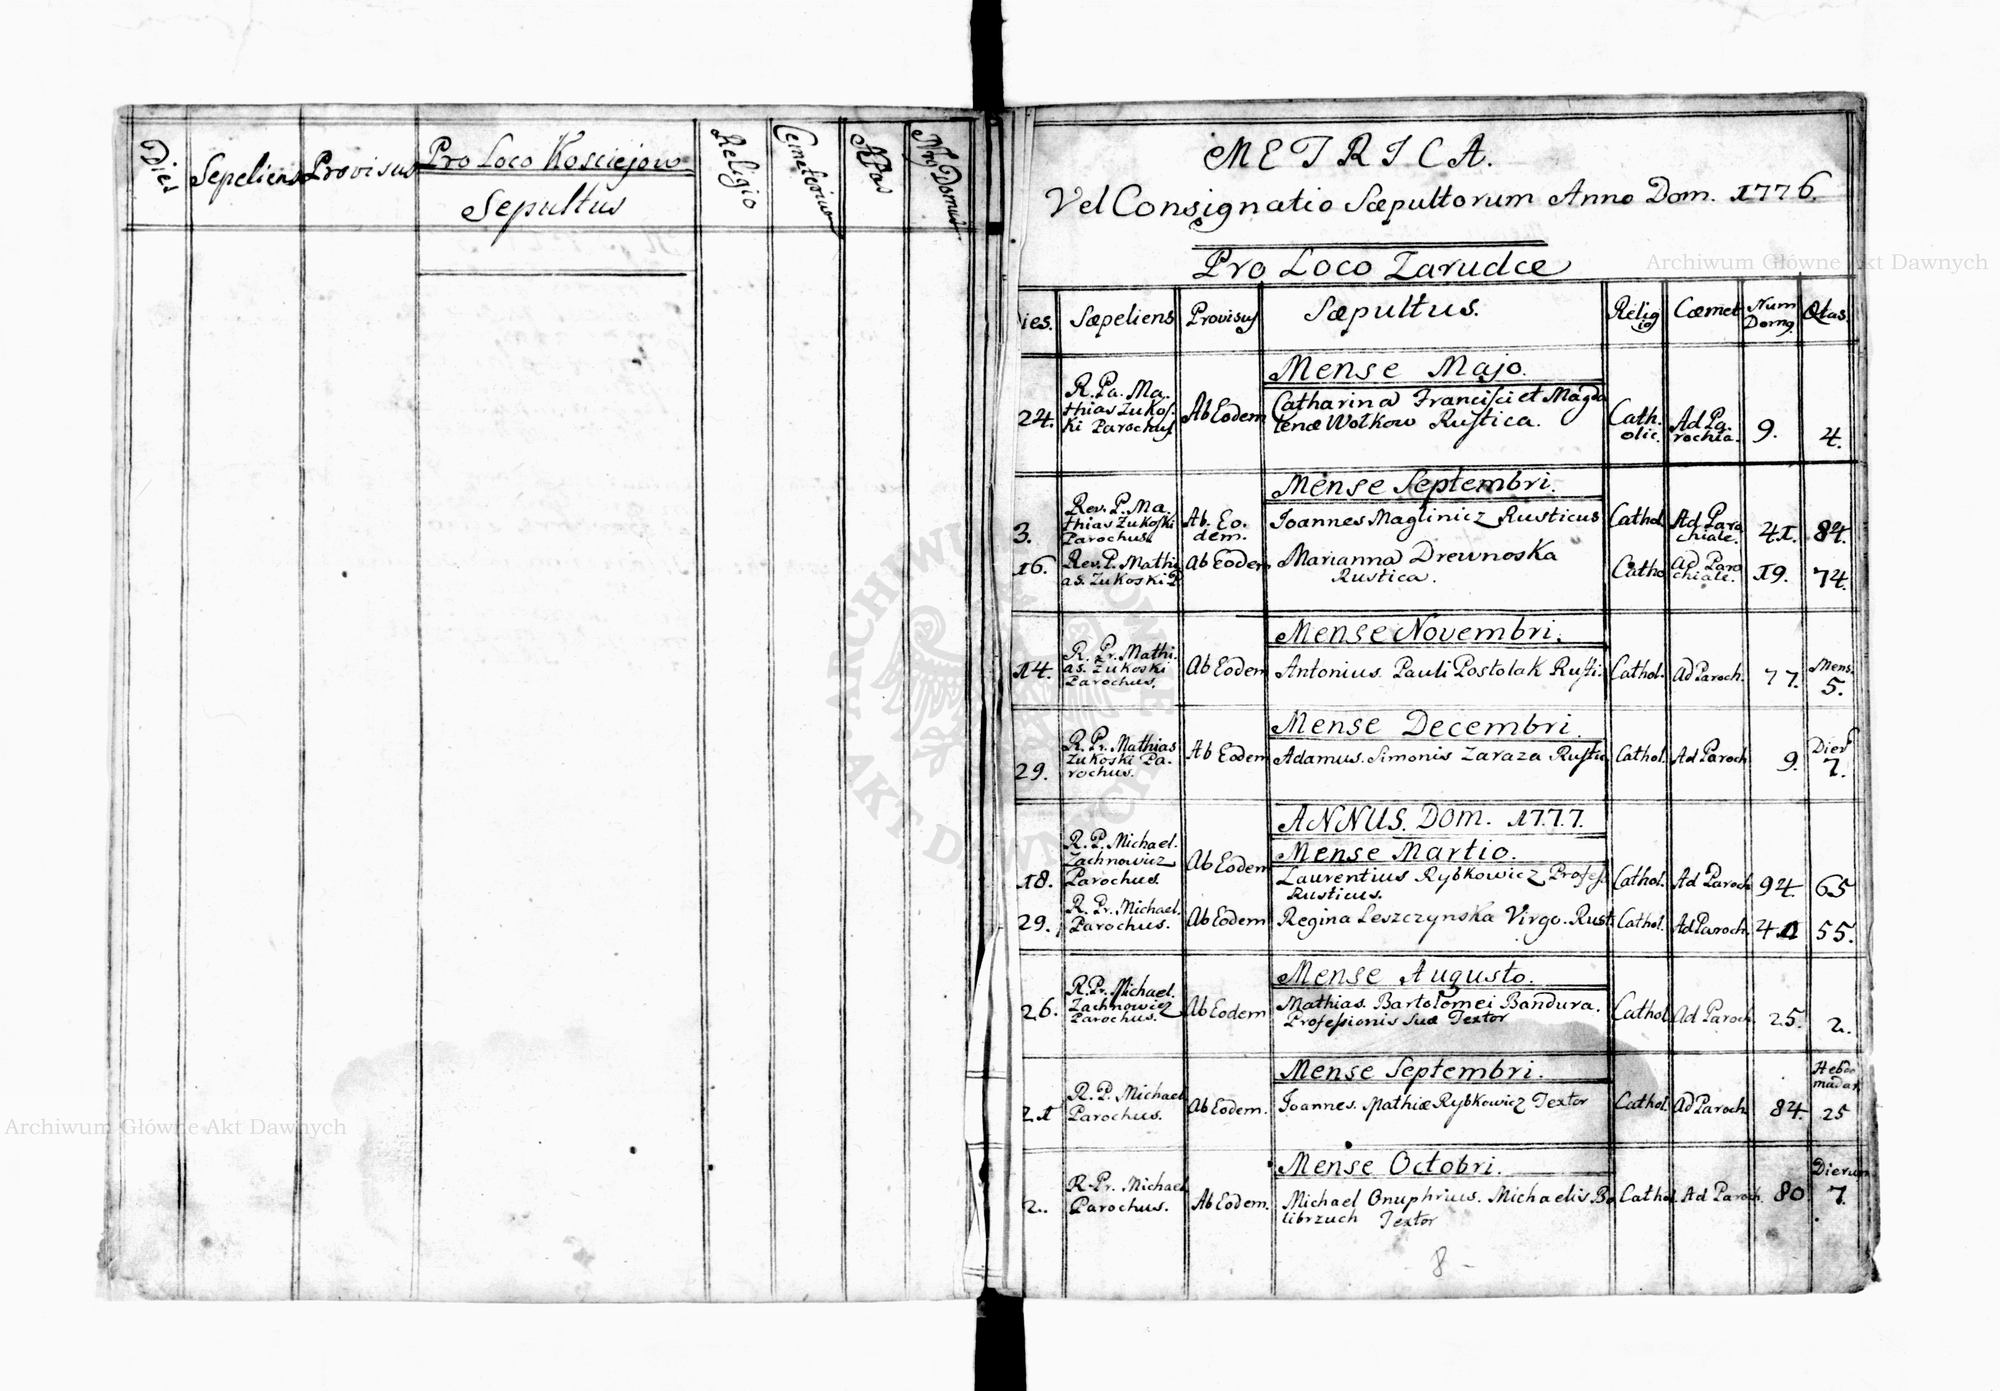 Dies
Sepeliens
Provisus
Pro Loco Kosciejow
Sepultus
Religio
Cemeterium
Ætas
Nro Domus
METRICA.
Vel Consignatio Sæpultorum Anno Dom. 1776.
Pro Loco Zarudce
Dies. Sæpeliens Provisus Sæpultus. Religio Cæmet Num Domg. Ætas.
Mense Majo.
24. R. Pa. Ma-
thias Zukos-
ki Parochus Ab Eodem Catharina Francisci et Magda
lenæ Wołkow Rustica. Cath.
olic. Ad Pa.
rochia. 9. 4.
Mense Septembri.
3. Rev. P. Ma.
thias Zukoski
Parochus. Ab. Eo.
dem. Joannes Maglinicz Rusticus Cathol. Ad Paro
chiale. 41. 84.
16. Rev. P. Mathi
as. Zukoski P Ab Eodem Marianna Drewnoska
Rustica. Catho Ad Paro
chiale. 19. 74.
Mense Novembri.
14. R. Pr. Mathi.
as. Zukoski
Parochus. Ab Eodem Antonius. Pauli Postolak Rusti. Cathol. Ad Paroch. 77. Mens.
5.
Mense Decembri.
29. R. Pr. Mathias
Zukoski Pa.
rochus. Ab Eodem Adamus. Simonis Zaraza Rustic Cathol. Ad Paroch 9. Dies
7.
ANNUS. DOM. 1777.
Mense Martio.
18. R. P. Michael.
Zachnowicz
Parochus. Ab Eodem Laurentius Rybkowicz Profess
Rusticus. Cathol. Ad Paroch 94. 65
29. R. Pr. Michael.
Parochus. Ab Eodem Regina Leszczynska Virgo. Rust. Cathol. Ad Paroch. 41 55.
Mense Augusto.
26. R. Pr. Michael.
Zachnowicz
Parochus. Ab Eodem Mathias. Bartolomei Bandura.
Professionis Suæ Textor Cathol Ad Paroch. 25. 2.
Mense Septembri.
21 R. P. Michael
Parochus. Ab Eodem. Joannes. Mathiæ Rybkowicz Textor Cathol. Ad Paroch 84. Hebdo
madar.
25
Mense Octobri.
2. R. Pr. Michael
Parochus. Ab Eodem. Michael Onuphrius. Michaelis Bo
librzuch Textor Cathol. Ad Paroch. 80 Dierum
7.
8
Archiwum Główne Akt Dawnych
Archiwum Główne Akt Dawnych